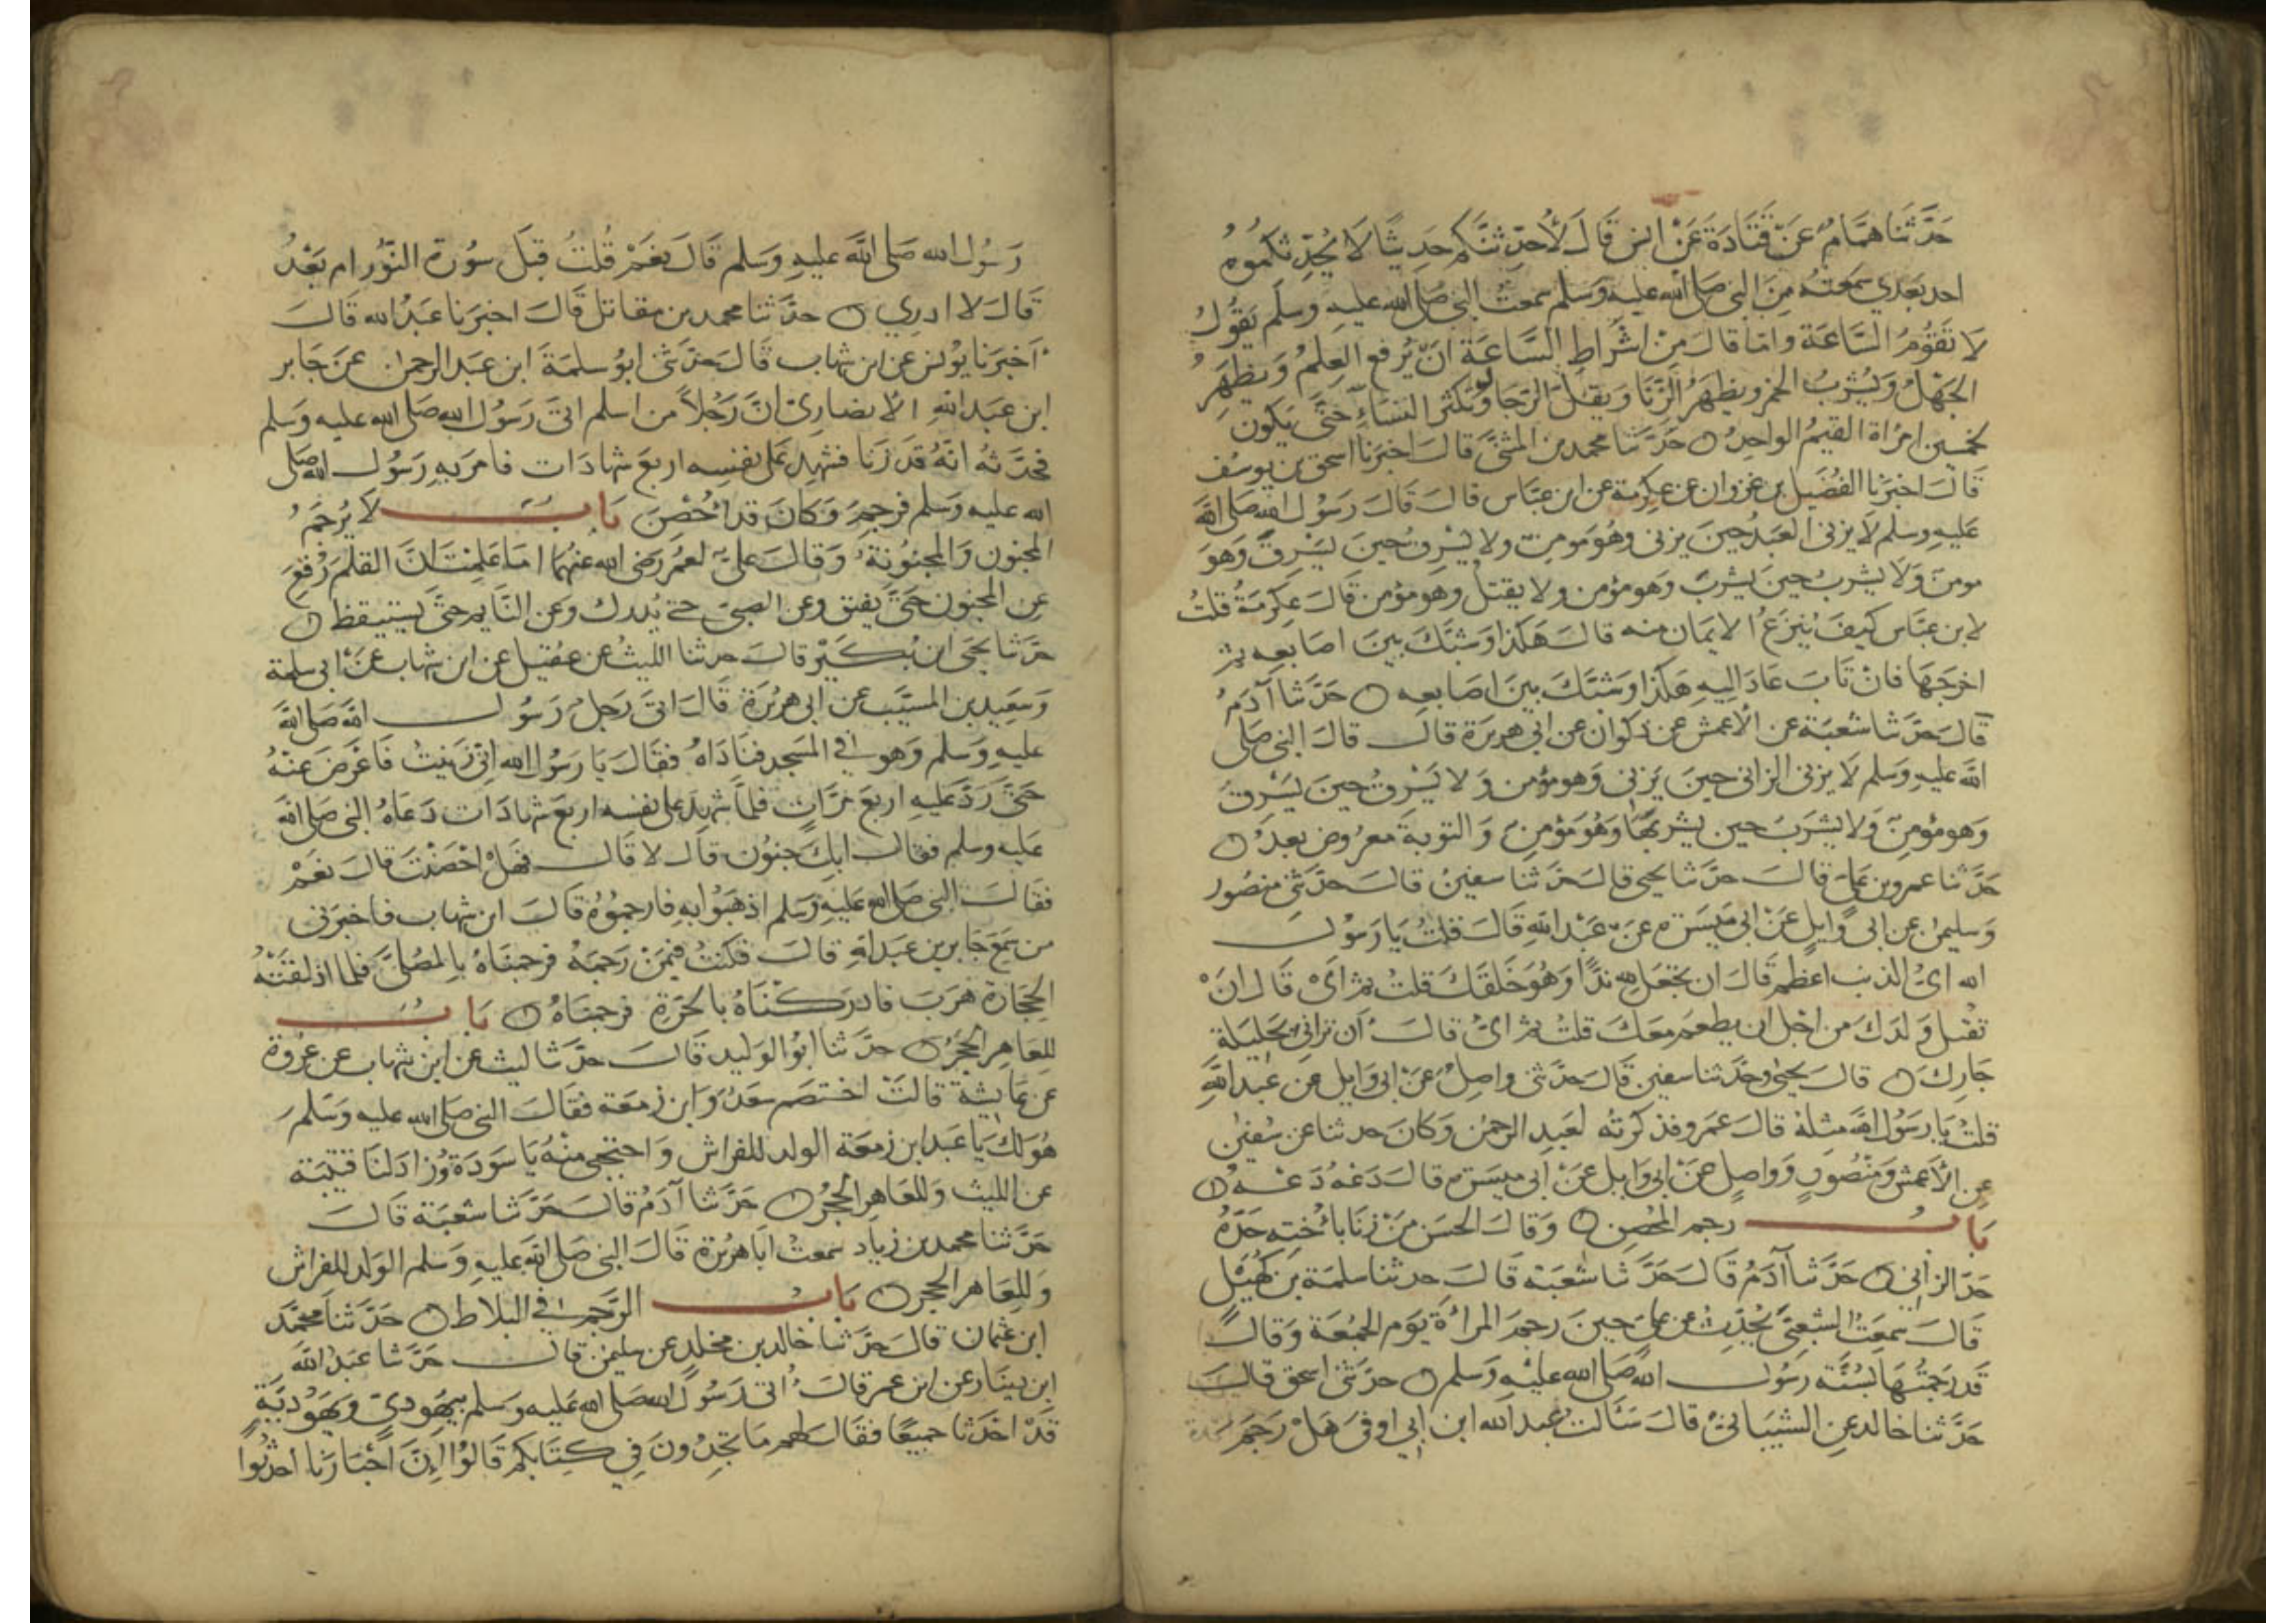 حَدَّثَنَا هَمَّامٌ عَنْ قَتَادَةَ عَنْ انس قَالَ لَأُحَدِّثَنَّكم حَدِيثًا لَا يُحَدِّثكموهُ
احد بَعْدي سمعته مِنَ النبي صَلى الله عليه وَسَلم سمعتُ النبي صَلى الله عليه وسلم يَقُولُ
لا تَقُومُ السَّاعَة واما قالَ مِنْ اشْرَاطِ السَّاعَة انْ يُرفع العِلمُ وَيظهَرُ
الجهْلُ وَيُشْرَبُ الخمر ويظهَرُ الزِّنَا وَيقلّ الرّجَال ويكثر النسَاءُ حَتَّى يَكون
لخمسين امرَاة القيمُ الواحِدُ ۝ حَدَّثَنَا محمد بن المثنَّى قالَ اخبَرنا اسحق بن يوسُف
قَالَ اخبَرَنَا الفُضَيل بن غزوان عن عِكرمة عن ابن عبّاس قالَ قالَ رَسُول الله صَلى الله
عَليهِ وسَلم لَا يزني العَبدُ حينَ يزني وهُوَ مومن ولا يسْرِق حينَ يَسْرِق وَهوَ
مومنٌ وَلَا يشرَبُ حينَ يشربُ وَهو مؤمن ولا يقتل وهو مؤمن قَالَ عِكرمَةُ قلتُ
لابن عبَّاس كيفَ يُنزَعُ الايمَان منه قالَ هَكذا وَشبَّكَ بينَ اصَابعِه ثم
اخرَجَهَا فانْ تَابَ عَادَ اليهِ هَكذا وَشبَّكَ بينَ اصَابعِه ۝ حَدَّثَنَا آدَمُ
قَالَ حَدَّثَنَا شعْبَة عن الأعمش عن ذكوان عن ابي هريرَة قالَ قالَ النبي صَلى
الله عليهِ وَسَلم لَا يزني الزاني حينَ يَزني وَهو مؤمن وَلا يَسْرِقُ حينَ يَسْرقُ
وَهو مؤمنٌ وَلا يشرَبُ حين يشربُهَا وَهُوَ مؤمنٌ وَالتوبَة معرُوض بعدُ ۝
حَدَّثَنَا عمرو بن علي قالَ حدَّثَنَا يحيى قالَ حَدَّثَنَا سفينُ قالَ حَدَّثَني منصُور
وَسليمن عن ابي وَايل عَنْ ابي مَيسَرَة عَنْ عَبْد الله قَالَ قلتُ يَا رَسُول
الله ايُّ الذنب اعظم قَالَ ان تجعَل لله ندًّا وَهُوَ خَلَقكَ قلتُ ثم اَيّ قَالَ انْ
تقتل وَلَدَكَ من اجْل ان يطعم معَكَ قلتُ ثم ايُّ قالَ ان تزاني بحَليلة
جَارِكَ ۝ قالَ يحيى وحَدّثنا سفين قَالَ حَدَّثَني واصِلٌ عَنْ ابي وَايل عن عَبد الله
قلتُ يَا رَسُول الله مثلهُ قالَ عَمرو فذكرته لعَبد الرحمن وَكانَ حدثنا عن سُفين
عن الأعمش وَمَنْصُورٍ وَواصِلٍ عَنْ ابي وَايل عَنْ ابي ميسَرَة قالَ دَعْهُ دَعْهُ ۝
بَابُ رجم المحْصِن ۝ وَقالَ الحسَن مَنْ زنَا باُخته حَدّهُ
حَدّ الزاني ۝ حَدَّثَنَا آدَمُ قَالَ حَدَّثَنَا شعْبَة قَالَ حدثنا سلمَة بن كُهَيْل
قَالَ سَمِعْتُ الشعبيَّ يُحَدّث عن علي حينَ رجمَ المرأةَ يَوم الجمُعَة وَقالَ
قَد رَجمتُهَا بسُنَّة رسُول الله صَلى الله عليْه وَسلم ۝ حدَّثَني اسحق قالَ
حَدَّثَنَا خالد عن الشيبَاني قالَ سَأَلتُ عبد الله ابن ابي اوفى هَلْ رَجمَ
رَسُول الله صَلى الله عليهِ وَسَلم قَالَ نعَمْ قُلتُ قبْلَ سُورة النّور ام بَعْدُ
قَالَ لا ادري ۝ حدَّثَنَا محمد بن مقاتل قَالَ اخبَرنا عَبْدُ الله قَالَ
اَخبرَنا يُونس عن ابن شهاب قَالَ حَدَّثَني ابو سلمَةَ ابن عَبد الرحمن عن جَابر
ابن عَبد الله الانصاريّ انّ رَجُلاً من اسلم اتى رَسُول الله صَلى الله عليه وَسَلم
فحدَّثَهُ انّهُ قَد زَنا فشهِدَ على نفسِه اربعَ شهادَات فامرَ بهِ رَسُول الله صلى
الله عليه وَسَلم فرجمَ وَكانَ قد اُحْصنَ بَابُ لَا يُرجَمُ
المجنون وَالمجنُونَة وَقالَ عليّ لعُمَر رَضي الله عنهُمَا امَا عَلِمْتَ انَّ القلَم رُفِعَ
عن المجنون حَتى يُفيق وعن الصبي حتى يُدرك وَعن النَّايم حَتَّى يستيقظ ۝
حَدَّثَنَا يحيى ابن بُكَيْر قالَ حدثنا الليثُ عن عُقيل عن ابن شهاب عن ابي سلمة
وَسَعِيد بن المسيَّب عن ابي هريرَة قَالَ اتى رَجلٌ رَسُول الله صَلى الله
عليهِ وَسَلم وَهو في المسَجد فنادَاهُ فقَالَ يَا رَسُول الله اني زَنيتُ فَاعْرَضَ عنهُ
حَتى رَدَّ عَليهِ اربعَ مَرّاتٍ فلمَّا شهدَ على نفسِه اربعَ شهادَات دَعَاهُ النبي صَلى الله
عَليه وسلم فقالَ ابكَ جنُون قَالَ لا قَالَ فَهَلْ احْصَنْتَ قالَ نعَمْ
فقَالَ النبي صَلى الله عليهِ وَسَلم اذهَبُوا به فارجمُوُهُ قَالَ ابن شهاب فاخبرَني
من سَمِعَ جَابر بن عَبد الله قالَ فكنتُ فيمَنْ رَجمَهُ فرجمنَاهُ بالمصَلَّى فلما اذلقتْهُ
الحجَارَة هَرَبَ فادركْنَاهُ بالحَرّةِ فرجمنَاهُ ۝ بَابُ
للعَاهِر الحجَرُ ۝ حَدَّثَنَا ابُو الوَليد قَالَ حدَّثَنَا ليث عن ابن شهاب عن عُروَة
عن عايشَة قالتْ اختصَم سَعدٌ وَابن زمعَة فقَالَ النبي صَلى الله عليه وَسَلمَ
هُوَ لكَ يَا عَبد ابن زمعَة الولد للفراش وَاحتجبي منهُ يَا سَودَة وزادَ لنَا قتيبَة
عن الليث وَللعَاهر الحجَرُ ۝ حَدَّثَنَا آدَمُ قَالَ حَدَّثَنَا شعبَة قَالَ
حَدَّثَنَا محمد بن زياد سمعتُ ابَا هريرَة قَالَ النبي صَلى الله عليهِ وَسَلم الوَلد للفراش
وَللعَاهر الحجر ۝ بَابُ الرَّجم في البلاط ۝ حَدَّثَنَا محمَّد
ابن عثمان قالَ حَدَّثَنَا خالد بن مخلد عن سليمن قالَ حَدَّثَنَا عَبْد الله
ابن دينار عن ابن عمر قالَ اُتي رَسُول الله صَلى الله عَليه وسَلم بيَهوديّ وَيهَوْديَّةٍ
قَدْ احْدَثَا جميعًا فقَالَ لهم مَا تجدُونَ في كتَابكم قَالوُا اِنّ احْبَارَنا احْدثُوا